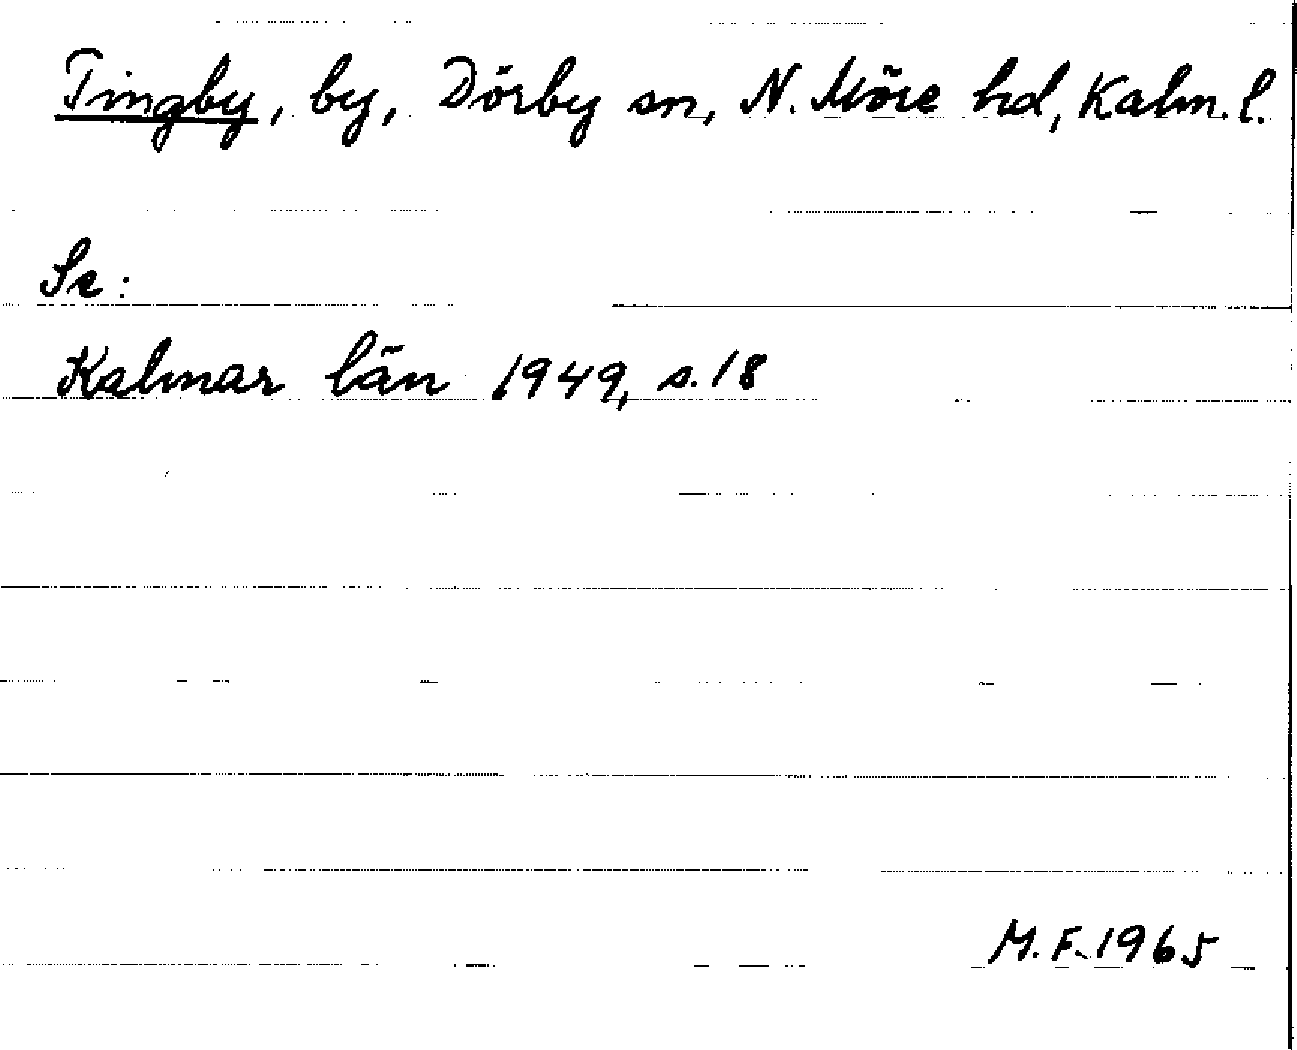 Tingby, by, Dörby sn, N. Möre hd, Kalm. l.
Se:
Kalmar län 1949, s. 18
M. F. 1965